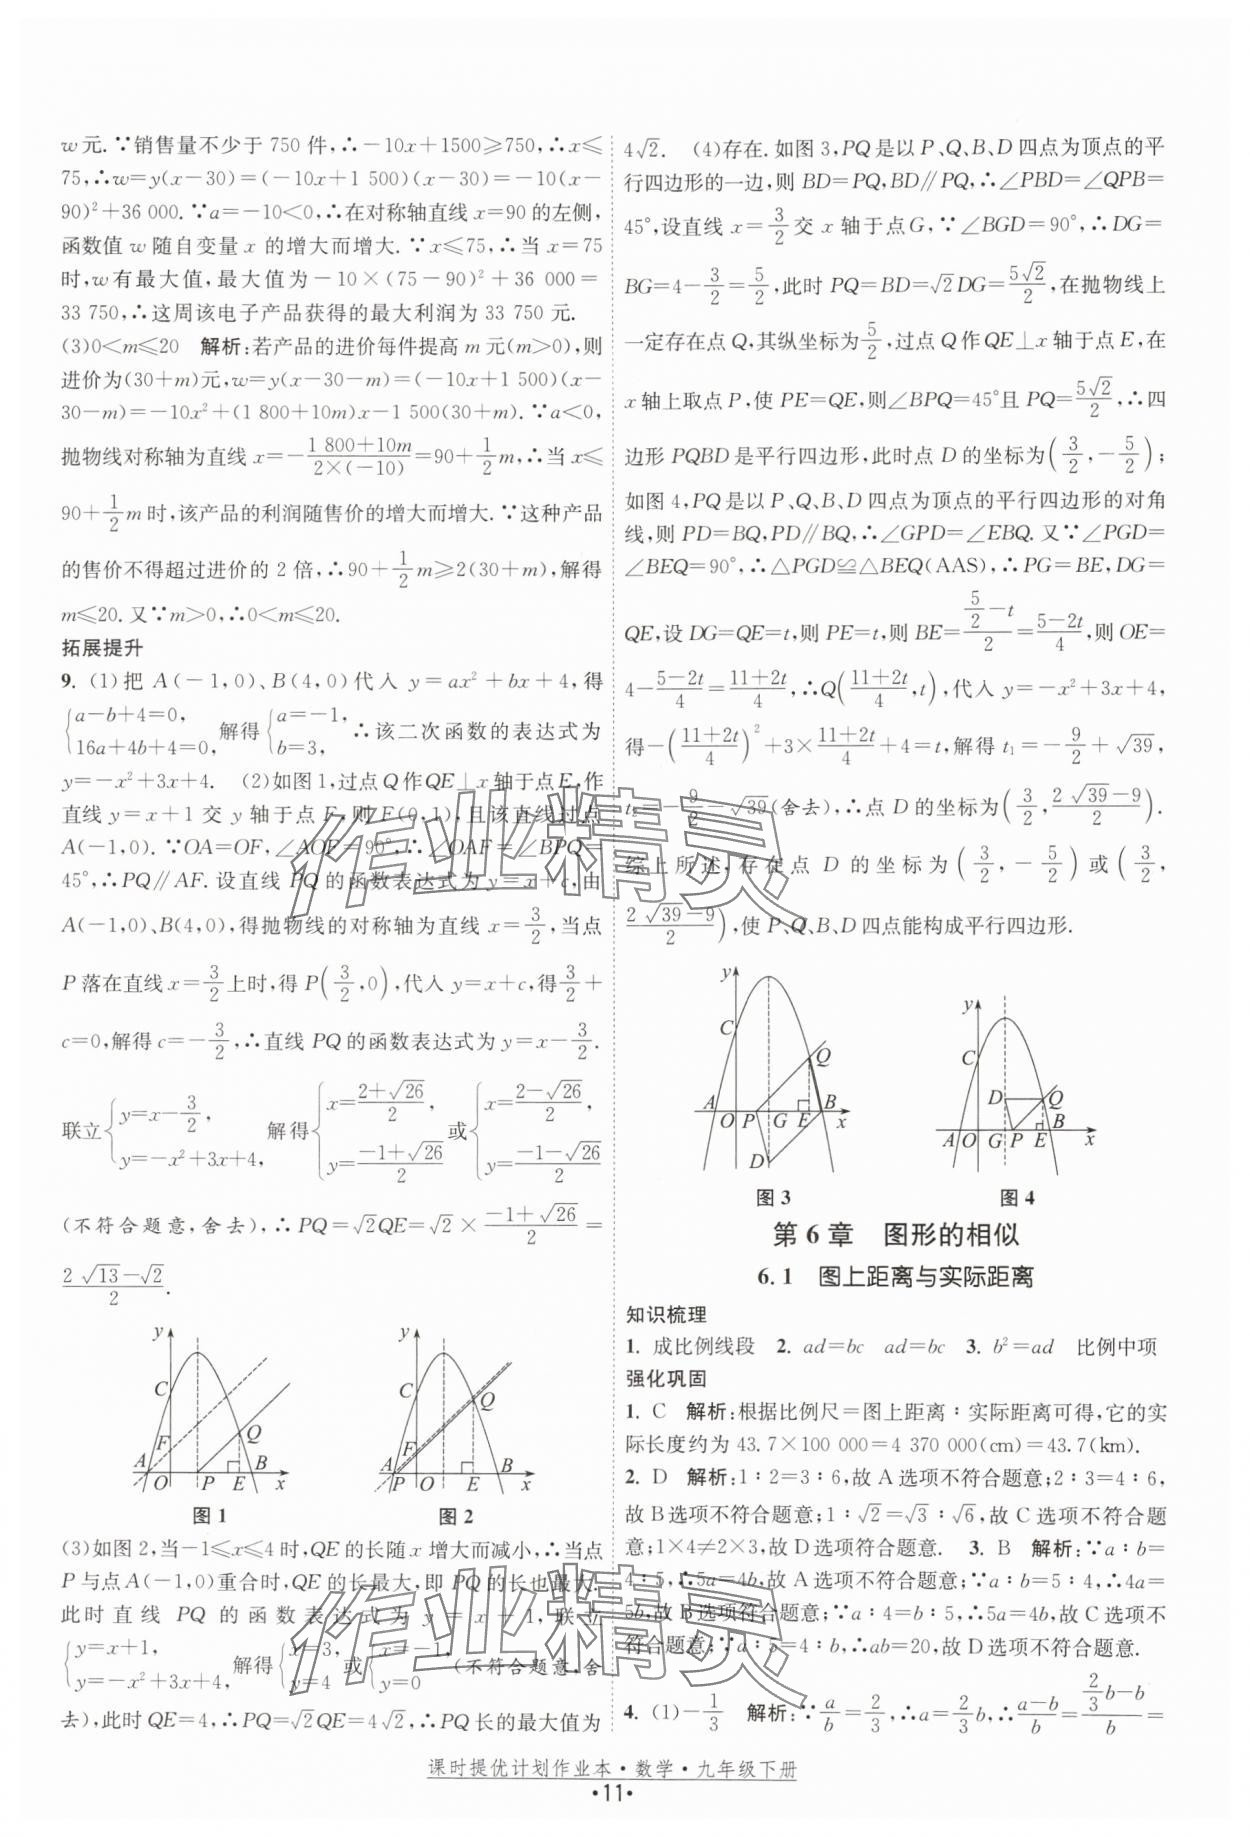 w元.∵销售量不少于750件,∴-10x+1500⩾750,∴x⩽
75,∴w=y(x-30)=(-10x+1 500)(x-30)=-10(x-
90)²+36 000.∵a=-10<0,∴在对称轴直线x=90的左侧,
函数值w随自变量x的增大而增大.∵x⩽75,∴当x=75
时,w有最大值,最大值为-10×(75-90)²+36 000=
33 750,∴这周该电子产品获得的最大利润为33 750元.
(3)0<m⩽20 解析:若产品的进价每件提高m元(m>0),则
进价为(30+m)元,w=y(x-30-m)=(-10x+1 500)(x-
30-m)=-10x²+(1 800+10m)x-1 500(30+m).∵a<0,
抛物线对称轴为直线x=-\frac{1 800+10m}{2×(-10)}=90+\frac{1}{2}m,∴当x⩽
90+\frac{1}{2}m时,该产品的利润随售价的增大而增大.∵这种产品
的售价不得超过进价的2倍,∴90+\frac{1}{2}m⩾2(30+m),解得
m⩽20.又∵m>0,∴0<m⩽20.
拓展提升
9. (1)把A(-1,0)、B(4,0)代入y=ax²+bx+4,得
{a-b+4=0, 16a+4b+4=0, 解得{a=-1, b=3, ∴该二次函数的表达式为
y=-x²+3x+4. (2)如图1,过点Q作QE⊥x轴于点E,作
直线y=x+1交y轴于点F,则F(0,1),且该直线过点
A(-1,0).∵OA=OF,∠AOF=90°,∴∠OAF=∠BPQ=
45°,∴PQ∥AF.设直线PQ的函数表达式为y=x+c,由
A(-1,0)、B(4,0),得抛物线的对称轴为直线x=\frac{3}{2},当点
P落在直线x=\frac{3}{2}上时,得P(\frac{3}{2},0),代入y=x+c,得\frac{3}{2}+
c=0,解得c=-\frac{3}{2},∴直线PQ的函数表达式为y=x-\frac{3}{2}.
联立{y=x-\frac{3}{2}, y=-x²+3x+4, 解得{x=\frac{2+√26}{2}, y=\frac{-1+√26}{2} 或{x=\frac{2-√26}{2}, y=\frac{-1-√26}{2}
(不符合题意,舍去),∴PQ=√2QE=√2×\frac{-1+√26}{2}=
\frac{2√13-√2}{2}.
y C F Q A O P E B x
图1
y C F Q A P O E B x
图2
(3)如图2,当-1⩽x⩽4时,QE的长随x增大而减小,∴当点
P与点A(-1,0)重合时,QE的长最大,即PQ的长也最大.
此时直线PQ的函数表达式为y=x+1,联立
{y=x+1, y=-x²+3x+4, 解得{x=3, y=4 或{x=-1, y=0 (不符合题意,舍
去),此时QE=4,∴PQ=√2QE=4√2,∴PQ长的最大值为
4√2. (4)存在.如图3,PQ是以P、Q、B、D四点为顶点的平
行四边形的一边,则BD=PQ,BD∥PQ,∴∠PBD=∠QPB=
45°,设直线x=\frac{3}{2}交x轴于点G,∵∠BGD=90°,∴DG=
BG=4-\frac{3}{2}=\frac{5}{2},此时PQ=BD=√2DG=\frac{5√2}{2},在抛物线上
一定存在点Q,其纵坐标为\frac{5}{2},过点Q作QE⊥x轴于点E,在
x轴上取点P,使PE=QE,则∠BPQ=45°且PQ=\frac{5√2}{2},∴四
边形PQBD是平行四边形,此时点D的坐标为(\frac{3}{2},-\frac{5}{2});
如图4,PQ是以P、Q、B、D四点为顶点的平行四边形的对角
线,则PD=BQ,PD∥BQ,∴∠GPD=∠EBQ.又∵∠PGD=
∠BEQ=90°,∴△PGD≌△BEQ(AAS),∴PG=BE,DG=
QE,设DG=QE=t,则PE=t,则BE=\frac{\frac{5}{2}-t}{2}=\frac{5-2t}{4},则OE=
4-\frac{5-2t}{4}=\frac{11+2t}{4},∴Q(\frac{11+2t}{4},t),代入y=-x²+3x+4,
得-(\frac{11+2t}{4})²+3×\frac{11+2t}{4}+4=t,解得t₁=-\frac{9}{2}+√39,
t₂=-\frac{9}{2}-√39(舍去),∴点D的坐标为(\frac{3}{2},\frac{2√39-9}{2}).
综上所述,存在点D的坐标为(\frac{3}{2},-\frac{5}{2})或(\frac{3}{2},
\frac{2√39-9}{2}),使P、Q、B、D四点能构成平行四边形.
y C Q A O P G E B x D
图3
y C D Q A O G P E B x
图4
第6章 图形的相似
6.1 图上距离与实际距离
知识梳理
1. 成比例线段 2. ad=bc ad=bc 3. b²=ad 比例中项
强化巩固
1. C 解析:根据比例尺=图上距离∶实际距离可得,它的实
际长度约为43.7×100 000=4 370 000(cm)=43.7(km).
2. D 解析:1∶2=3∶6,故A选项不符合题意;2∶3=4∶6,
故B选项不符合题意;1∶√2=√3∶√6,故C选项不符合题
意;1×4≠2×3,故D选项符合题意. 3. B 解析:∵a∶b=
4∶5,∴5a=4b,故A选项不符合题意;∵a∶b=5∶4,∴4a=
5b,故B选项符合题意;∵a∶4=b∶5,∴5a=4b,故C选项不
符合题意;∵a∶5=4∶b,∴ab=20,故D选项不符合题意.
4. (1)-\frac{1}{3} 解析:∵\frac{a}{b}=\frac{2}{3},∴a=\frac{2}{3}b,∴\frac{a-b}{b}=\frac{\frac{2}{3}b-b}{b}=
课时提优计划作业本·数学·九年级下册
·11·
作业精灵
作业精灵